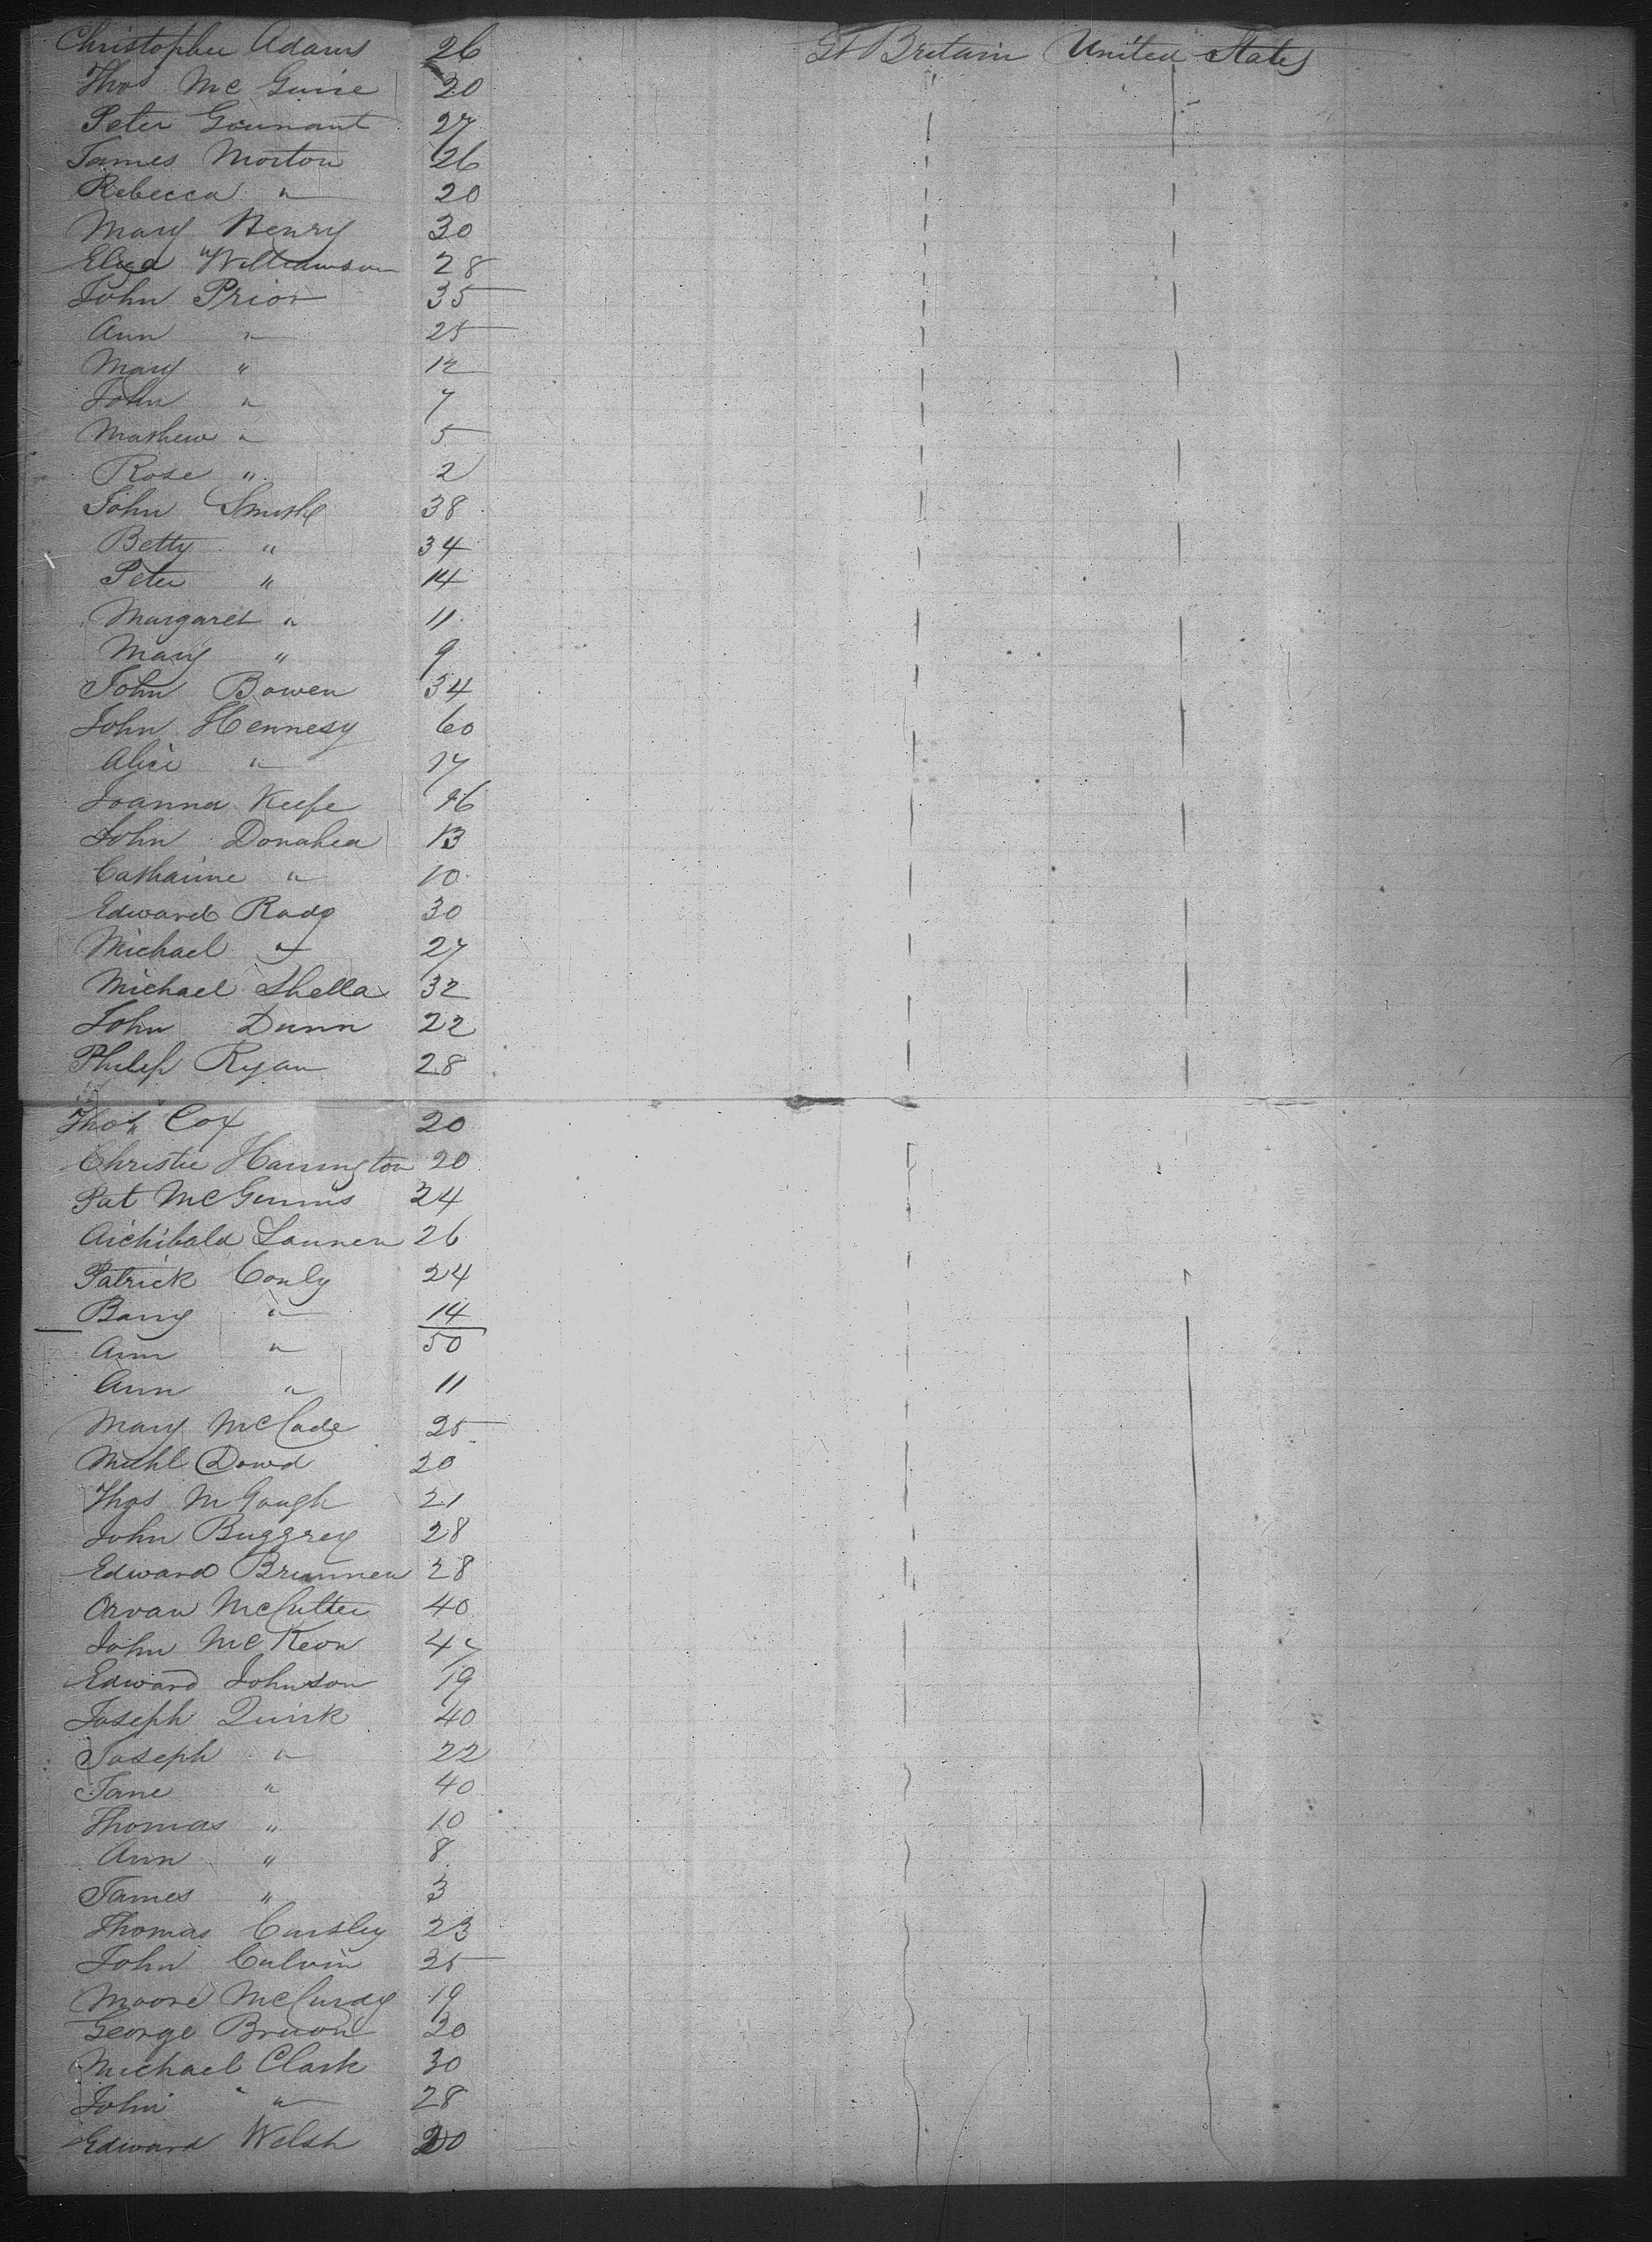 Christopher Adams 26 Gt Britain United States
Thos Mc Guire 20
Peter Gounant 27
James Morton 26
Rebecca " 20
Mary Henry 30
Eliza Williamson 28
John Prior 35
Ann " 25
Mary " 12
John " 7
Mathew " 5
Rose " 2
John Smith 38
Betty " 34
Peter " 14
Margaret " 11
Mary " 9
John Bowen 34
John Hennesy 60
Alice " 17
Joanna Keefe 16
John Donahea 13
Catharine " 10
Edward Rady 30
Michael " 27
Michael Shella 32
John Dunn 22
Philip Ryan 28
Thos Cox 20
Christie Harrington 20
Pat McGinnis 24
Archibald 26
Patrick Conly 24
Barry " 14
Ann " 50
Ann " 11
Mary McCade 25
Michl Dowd 20
Thos McGough 21
John Buggrey 28
Edward Brunnen 28
McCutter 40
John McKeon 47
Edward Johnson 19
Joseph Quirk 40
Joseph " 22
Jane " 40
Thomas " 10
Ann " 8
James " 3
Thomas Carsley 23
John Culvin 25
Moore McCurdy 19
George 20
Michael Clark 30
John " 28
Edward Welsh 20